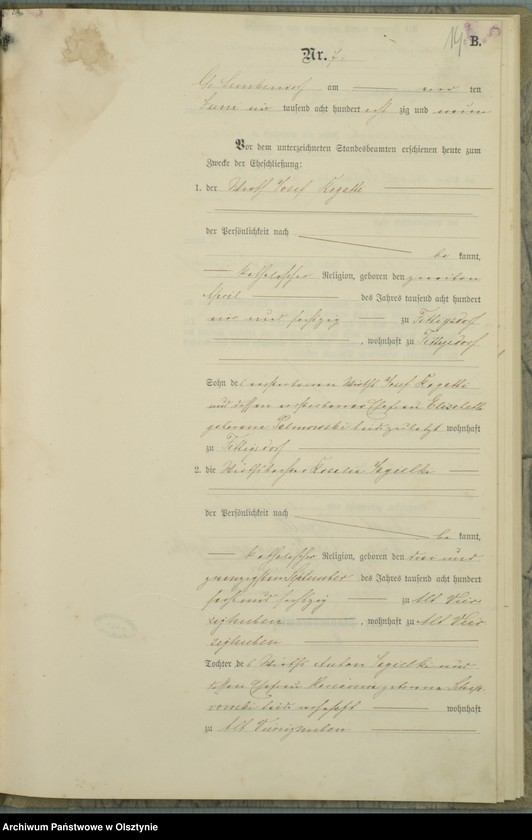 14 B.
Nr. 7.
am ten
Juni ein tausend acht hundert acht zig und neun
Vor dem unterzeichneten Standesbeamten erschienen heute zum
Zwecke der Eheschließung:
1. der Wirth Josef Kogatti
der Persönlichkeit nach
be kannt,
katholischer Religion, geboren den zweiten
April des Jahres tausend acht hundert
vier und sechszig zu Fittigsdorf
, wohnhaft zu Fittigsdorf
Sohn des verstorbenen Wirths Josef Kogatti
und dessen verstorbener Ehefrau Elisabeth
geborene Palmowski beide zuletzt wohnhaft
zu Fittigsdorf
2. die Wirthstochter Rosalia
der Persönlichkeit nach
be kannt,
katholischer Religion, geboren den drei und
zwanzigsten September des Jahres tausend acht hundert
sechs und sechszig zu Alt Vier-
zighuben , wohnhaft zu Alt Vier
zighuben
Tochter des Wirths Anton und
dessen Ehefrau geborene
beide wohnhaft
zu Alt Vierzighuben
Archiwum Państwowe w Olsztynie